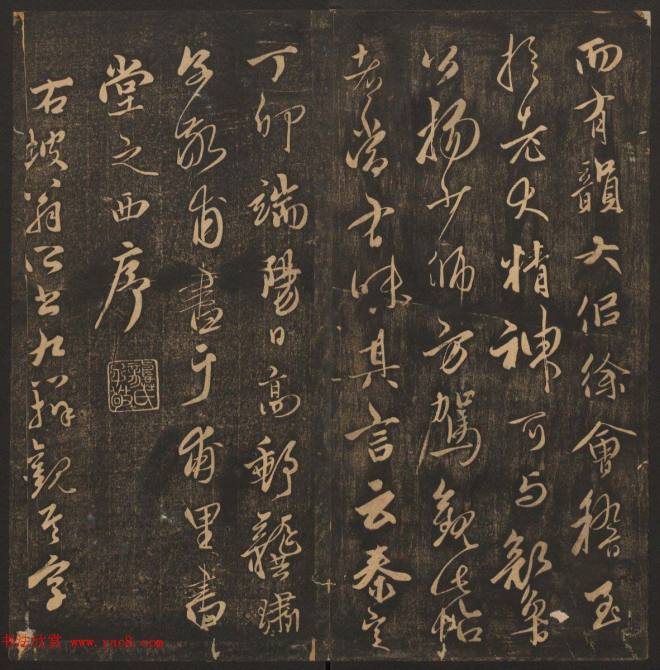 而有韻大侣徐會稽至
於老精神可与顔魯
公揚少師方駕觀此帖
者當味其言云泰定
丁卯端陽日高郵龔璛
子敬甫書于甫里書
堂之西序
右坡翁所書九辯觀其字
书法欣赏 www.yac8.com